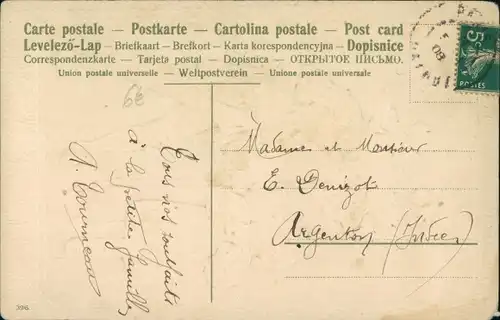 Carte postale – Postkarte – Cartolina postale – Post card
Levelező-Lap – Briefkaart – Brefkort – Karta korespondencyjna – Dopisnice
Correspondenzkarte – Tarjeta postal – Dopisnica – ОТКРЫТОЕ ПИСЬМО.
Union postale universelle – Weltpostverein – Unione postale universale
6€
Tous nos souhaits
à la petite famille
A. Tourneau
Madame et Monsieur
E. Denizot
Argenton (Indre)
5c
POSTES
08
396.